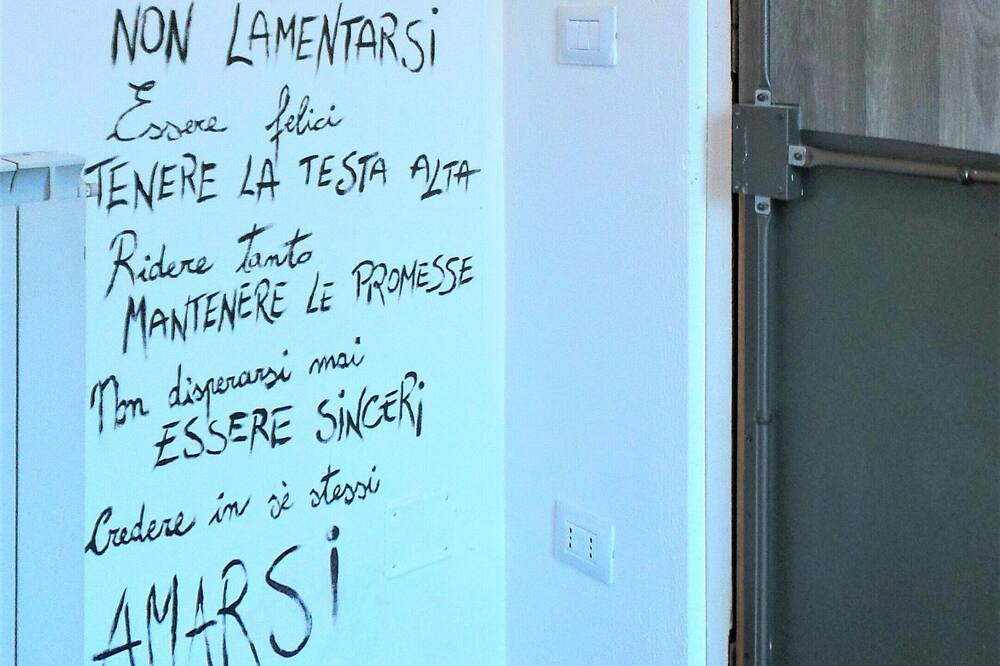 NON LAMENTARSi
Essere felici
TENERE LA TESTA ALTA
Ridere tanto
MANTENERE LE PROMESSE
Non disperarsi mai
ESSERE SiNCERi
Credere in sè stessi
AMARSi